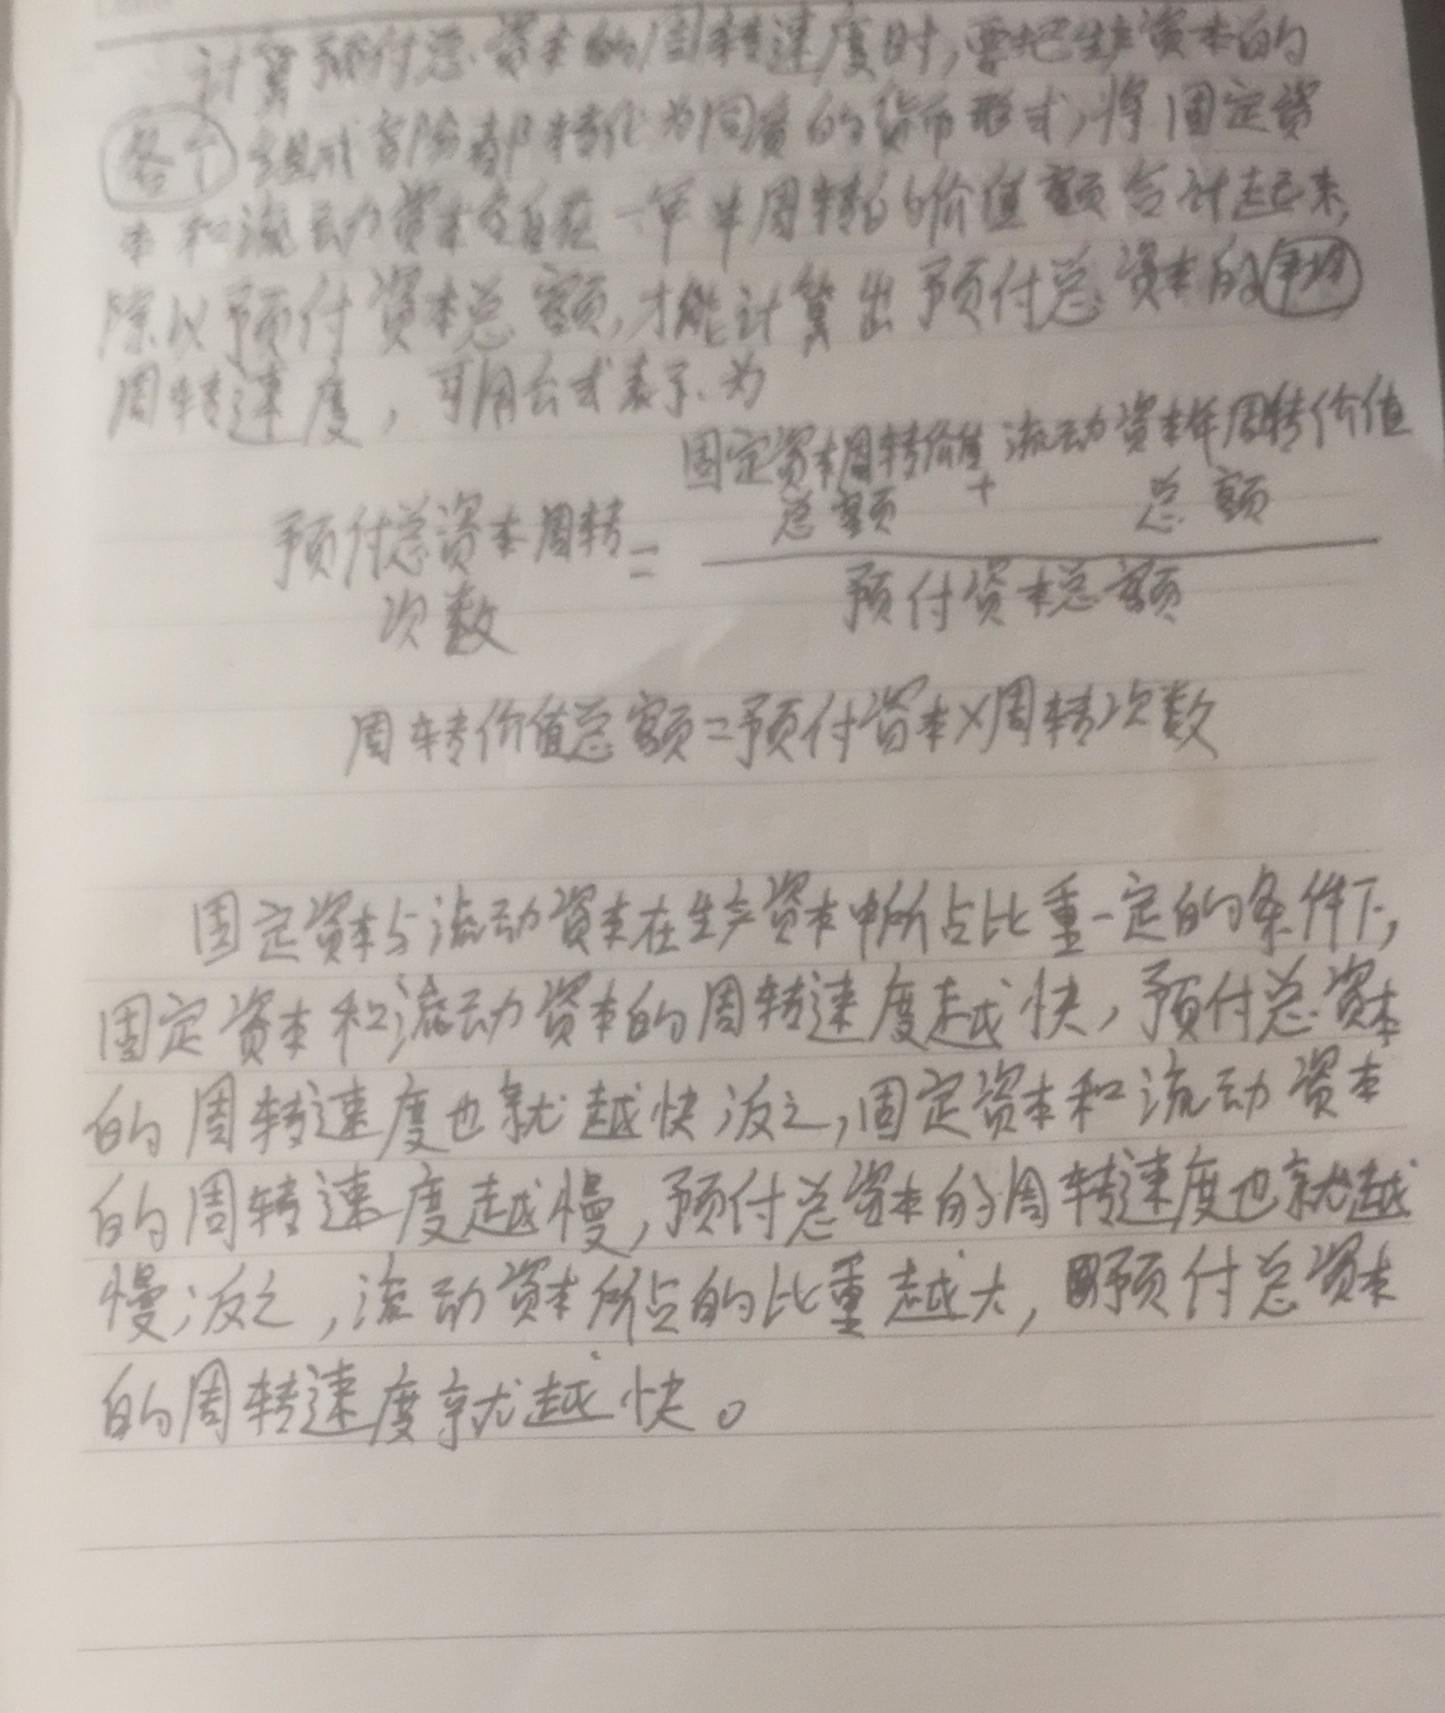 计算预付总资本的周转速度时,要把生产资本的
各个组成部份都转化为同质的货币形式,将固定资
本和流动资本各自在一年中周转的价值额合计起来,
除以预付资本总额,才能计算出预付总资本的平均
周转速度,可用公式表示为
固定资本周转价值 流动资本年周转价值
总额 + 总额
预付总资本周转 =
次数
预付资本总额
周转价值总额=预付资本×周转次数
固定资本与流动资本在生产资本中所占比重一定的条件下,
固定资本和流动资本的周转速度越快,预付总资本
的周转速度也就越快;反之,固定资本和流动资本
的周转速度越慢,预付总资本的周转速度也就越
慢;反之,流动资本所占的比重越大,预付总资本
的周转速度就越快。